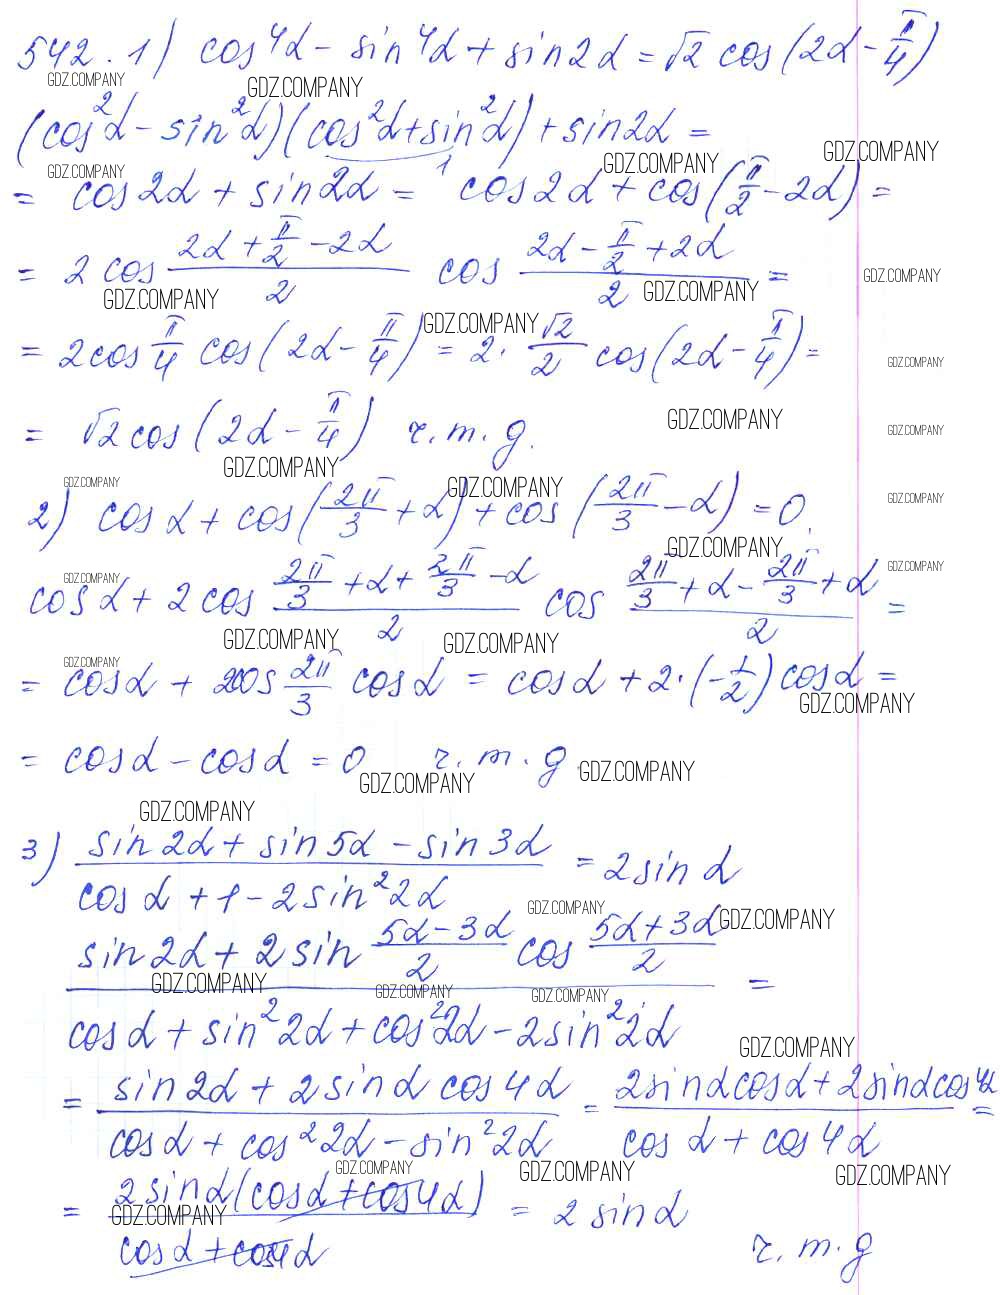 542. 1) cos⁴α - sin⁴α + sin2α = √2 cos(2α - π/4)
GDZ.COMPANY GDZ.COMPANY
(cos²α - sin²α)(cos²α + sin²α) + sin2α =
1
GDZ.COMPANY GDZ.COMPANY GDZ.COMPANY
= cos2α + sin2α = cos2α + cos(π/2 - 2α) =
= 2cos (2α + π/2 - 2α)/2 cos (2α - π/2 + 2α)/2 =
GDZ.COMPANY GDZ.COMPANY GDZ.COMPANY
GDZ.COMPANY
= 2cos π/4 cos(2α - π/4) = 2·√2/2 cos(2α - π/4) =
GDZ.COMPANY
= √2 cos(2α - π/4) r.m.g.
GDZ.COMPANY GDZ.COMPANY
GDZ.COMPANY
GDZ.COMPANY GDZ.COMPANY GDZ.COMPANY
2) cosα + cos(2π/3 + α) + cos(2π/3 - α) = 0
GDZ.COMPANY
GDZ.COMPANY GDZ.COMPANY
cosα + 2cos (2π/3 + α + 2π/3 - α)/2 cos (2π/3 + α - 2π/3 + α)/2 =
GDZ.COMPANY GDZ.COMPANY
GDZ.COMPANY
= cosα + 2cos 2π/3 cosα = cosα + 2·(-1/2)cosα =
GDZ.COMPANY
= cosα - cosα = 0 r.m.g.
GDZ.COMPANY GDZ.COMPANY
GDZ.COMPANY
3) (sin2α + sin5α - sin3α)/(cosα + 1 - 2sin²2α) = 2sinα
GDZ.COMPANY GDZ.COMPANY
(sin2α + 2sin (5α - 3α)/2 cos (5α + 3α)/2)/(cosα + sin²2α + cos²2α - 2sin²2α) =
GDZ.COMPANY GDZ.COMPANY GDZ.COMPANY
GDZ.COMPANY
= (sin2α + 2sinα cos4α)/(cosα + cos²2α - sin²2α) = (2sinαcosα + 2sinαcos4α)/(cosα + cos4α) =
GDZ.COMPANY GDZ.COMPANY GDZ.COMPANY
= 2sinα(cosα + cos4α)/(cosα + cos4α) = 2sinα
GDZ.COMPANY
r.m.g